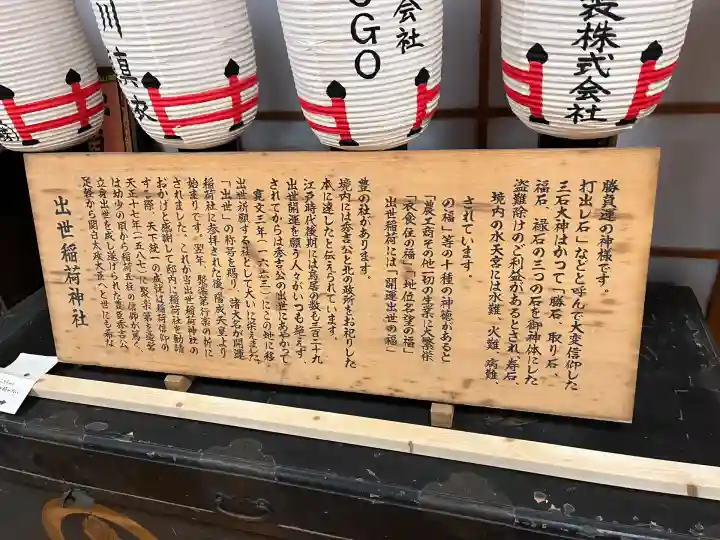 川
真敬
会社
OGO
設株式会社
出世稲荷神社
足軽から関白太政大臣へと世にも希な
立身出世を成し遂げられた豊臣秀吉公
は幼少の頃から稲荷大社の信仰が篤く
天正十五年(一五八七)に聚楽第を造営
する際、天下統一の成就は稲荷信仰の
おかげと感謝して邸内に稲荷社を勧請
されました。これが当出世稲荷神社の
始まりです。翌年、聚楽第行幸の折に
稲荷社に参拝された後陽成天皇より
「出世」の称号を賜り、諸大名が開運
出世祈願する社として大いに栄えました。
寛文三年(一六六三)にこの地に移
されてからは秀吉公の出世にあやかって
出世開運を願う人々がいつも絶えず、
江戸時代後期には鳥居の数も三百二十九
本に達したと伝えられています。
境内には秀吉公と北の政所をお祀りした
豊の社があります。
出世稲荷には「開運出世の福」
「衣食住の福」「地位名誉の福」
「農工商その他一切の生業に大繁栄
の福」等の十種の神徳があると
されています。
境内の水天宮には水難、火難、病難、
盗難除けのご利益があるとされ、寿石、
福石、禄石の三つの石を御神体にした
三石大神はかつて「勝石、取り石、
打出し石」などと呼んで大変信仰した
勝負運の神様です。